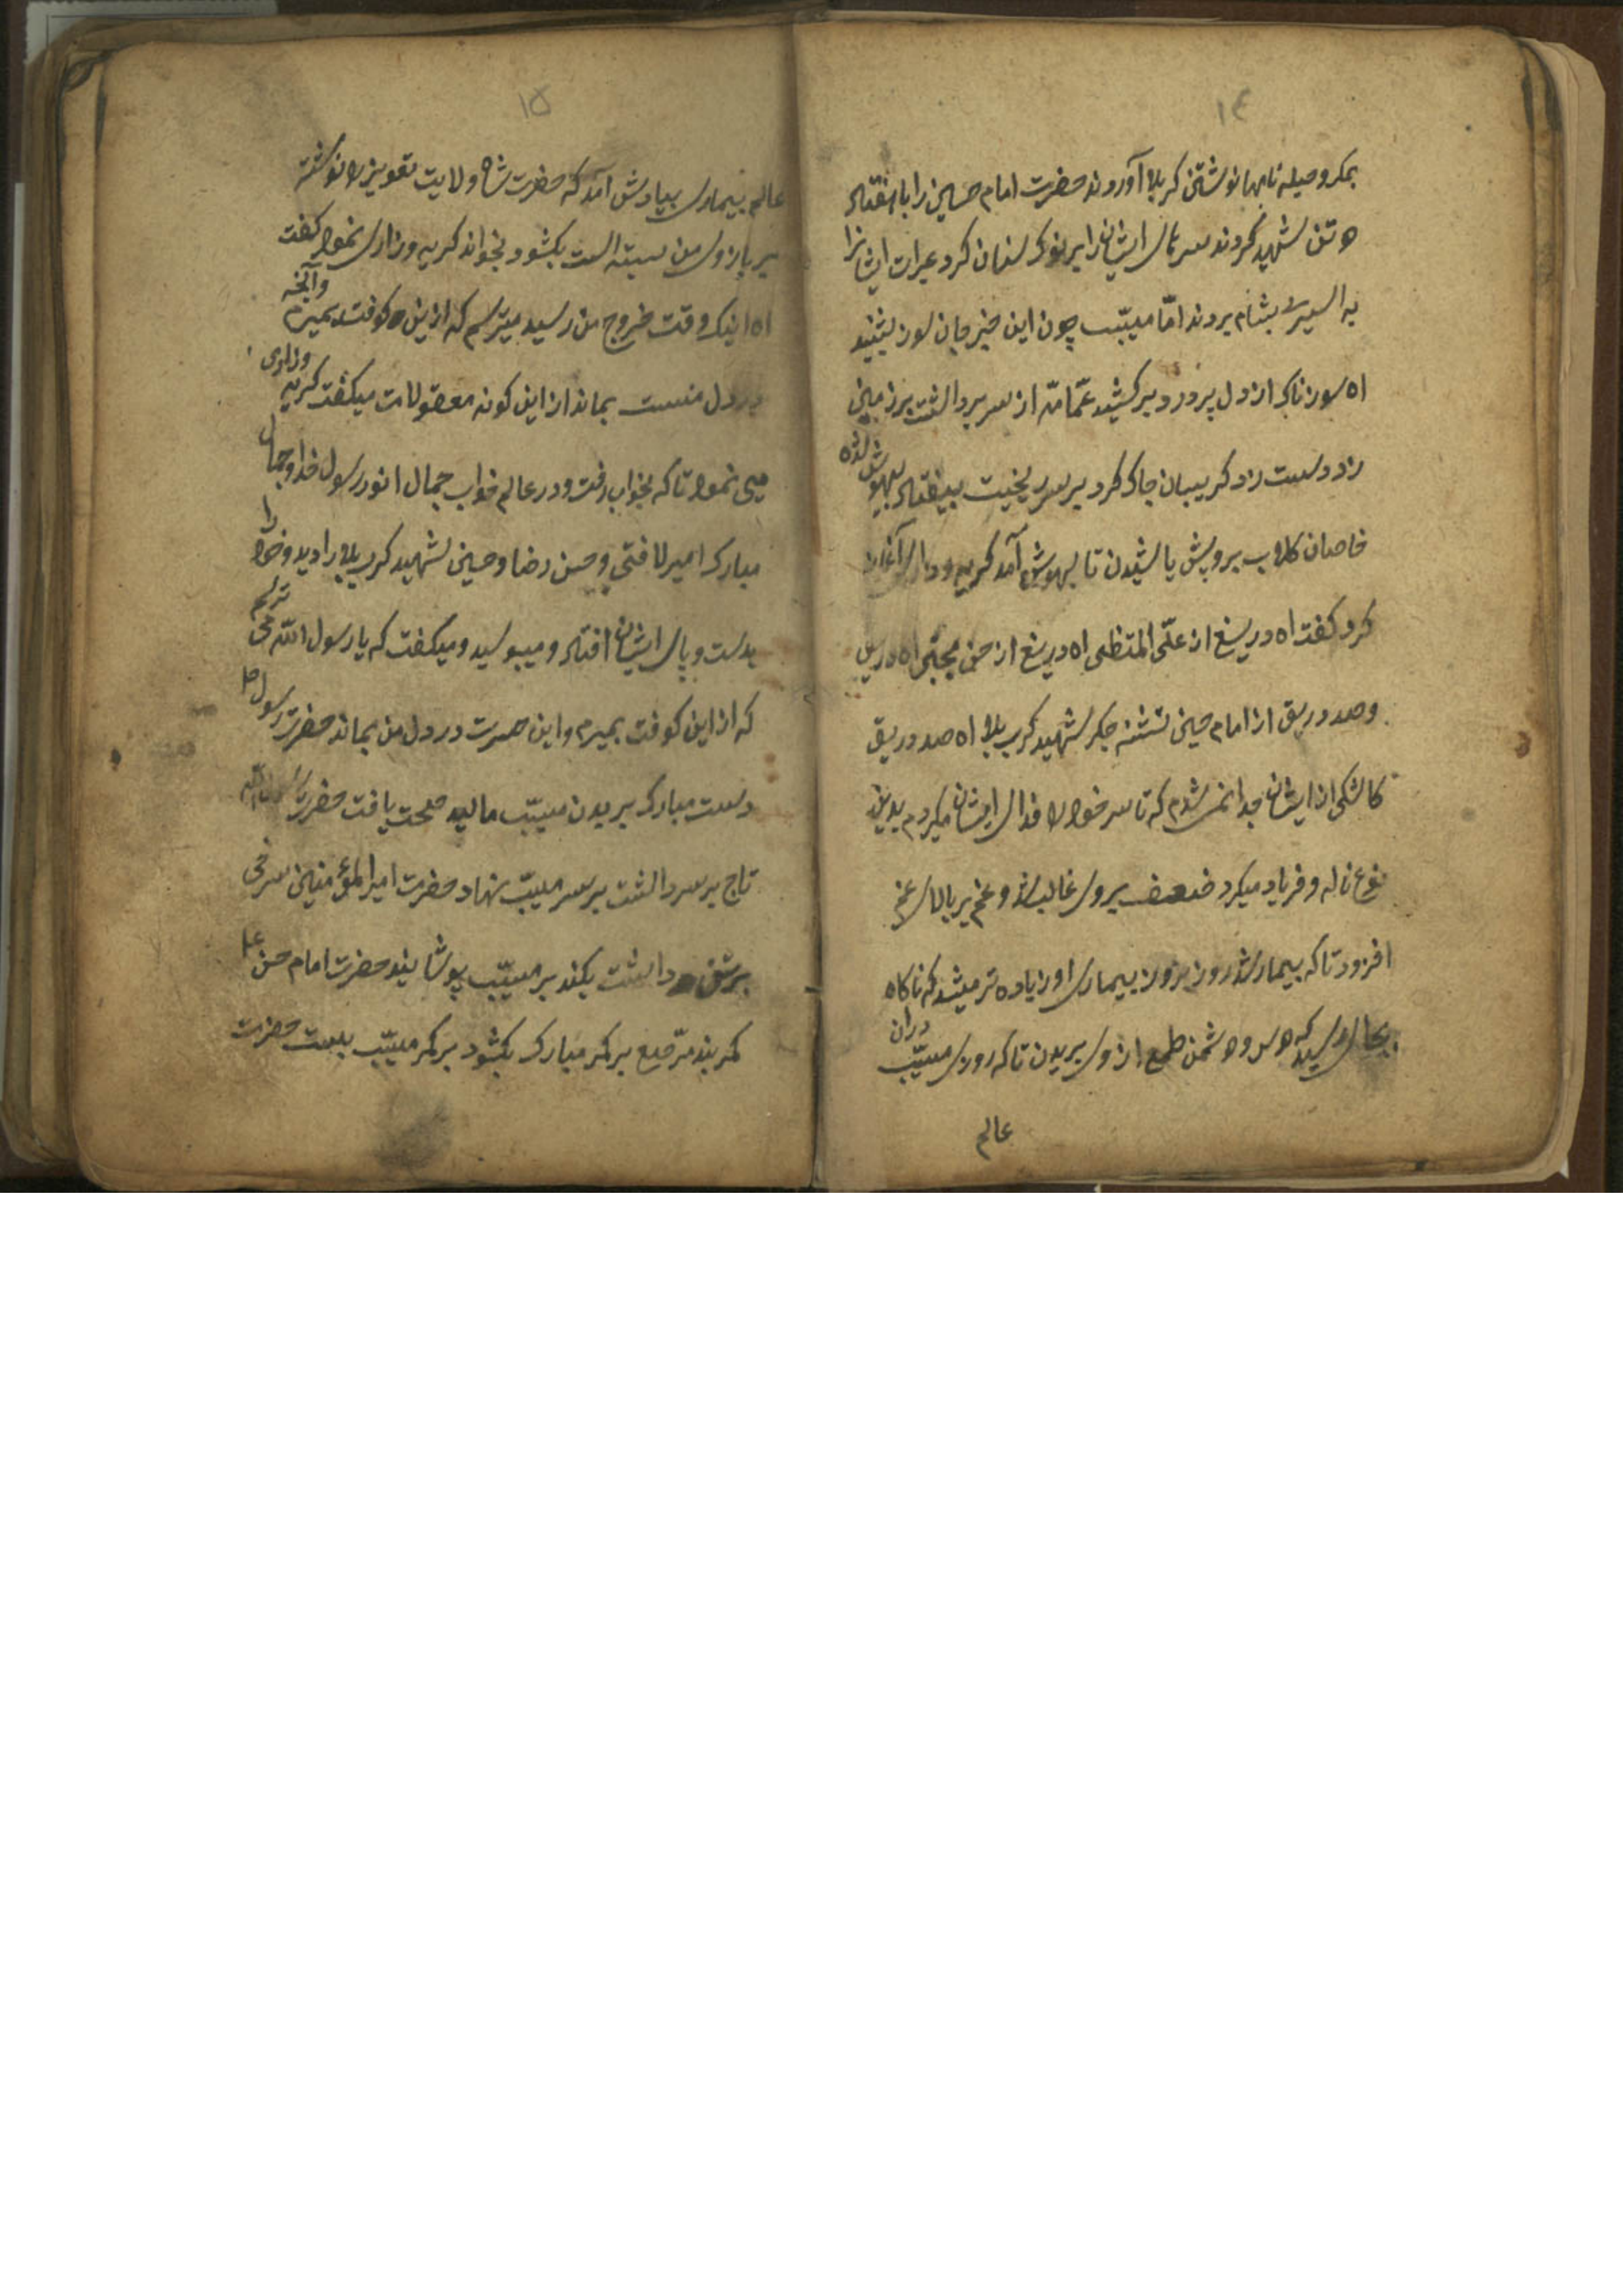 ١٤
بمکر و حیله نامها نوشتن کربلا آوردند حضرت امام حسین را با هفتاد
دو تن شهید کردند سرهای ایشان را بر نوک سنان کرد عیرات ایشانرا
به اسیری بشام بردند امّا مسیّب چون این خبر جان سوز بشنید
اه سوزناک از دل پر درد بر کشید عمّامه از سر برداشت بر زمین
زد دست زد کریبان چاک کرد بر سر ریخیت بیفتاد بیهوش شده
خاصان کلاب بر ویش پاشیدن تا بهوش آمد کریه و زاری آغاز
کرد کفت اه دریغ از علّی المتظی اه دریغ از حسن مجتبی اه دریق
و صد دریق از امام حسین تشنه جکر شهید کرب بلا اه صد دریق
کاشکی از ایشان جدا نمیشدم که تا سر خود را فدای ایشان میکردم بدین
نوع ناله و فریاد میکرد ضعف بر وی غالب شد و غم بر بالای غم
افزود تا که بیمار شد روز بروز بیماری او زیاده تر میشد که ناکاه
بحالی رسید که دوست و دشمن طمع از وی بریدن تا که روزی مسیّب دران
عالم
١٥
عالم بیماری بیادش آمد که حضرت شاه ولایت تعویز را نوشته
بر بازوی من بسته است بکشود بخواند کریه و زاری نمود کفت
اه اینک وقت خروج من رسید میترسم که ازین کوفت بمیرم وآنچه
در دل منست بماند از این کونه معقولات میکفت کریه وزاری
می نمود تا که بخواب رفت و در عالم خواب جمال انور رسول خدا و جمال
مبارک امیر لا فتی و حسن رضا و حسین شهید کرب بلا را دید و خود را
بدست و پای ایشان افتاد و میبوسید و میکفت که یا رسول الله می ترسم
که از این کوفت بمیرم و این حسرت در دل من بماند حضرت رسول ص
دست مبارک بر بدن مسیّب مالید صحت یافت حضرت رسول الله
تاج بر سر داشت بر سر مسیّب نهاد حضرت امیر المؤمنین سرخی
بر تن داشت بکند بر مسیّب پوشانید حضرت امام حسن ع
کمر بند مرّصع بر کمر مبارک بکشود بر کمر مسیّب ببست حضرت